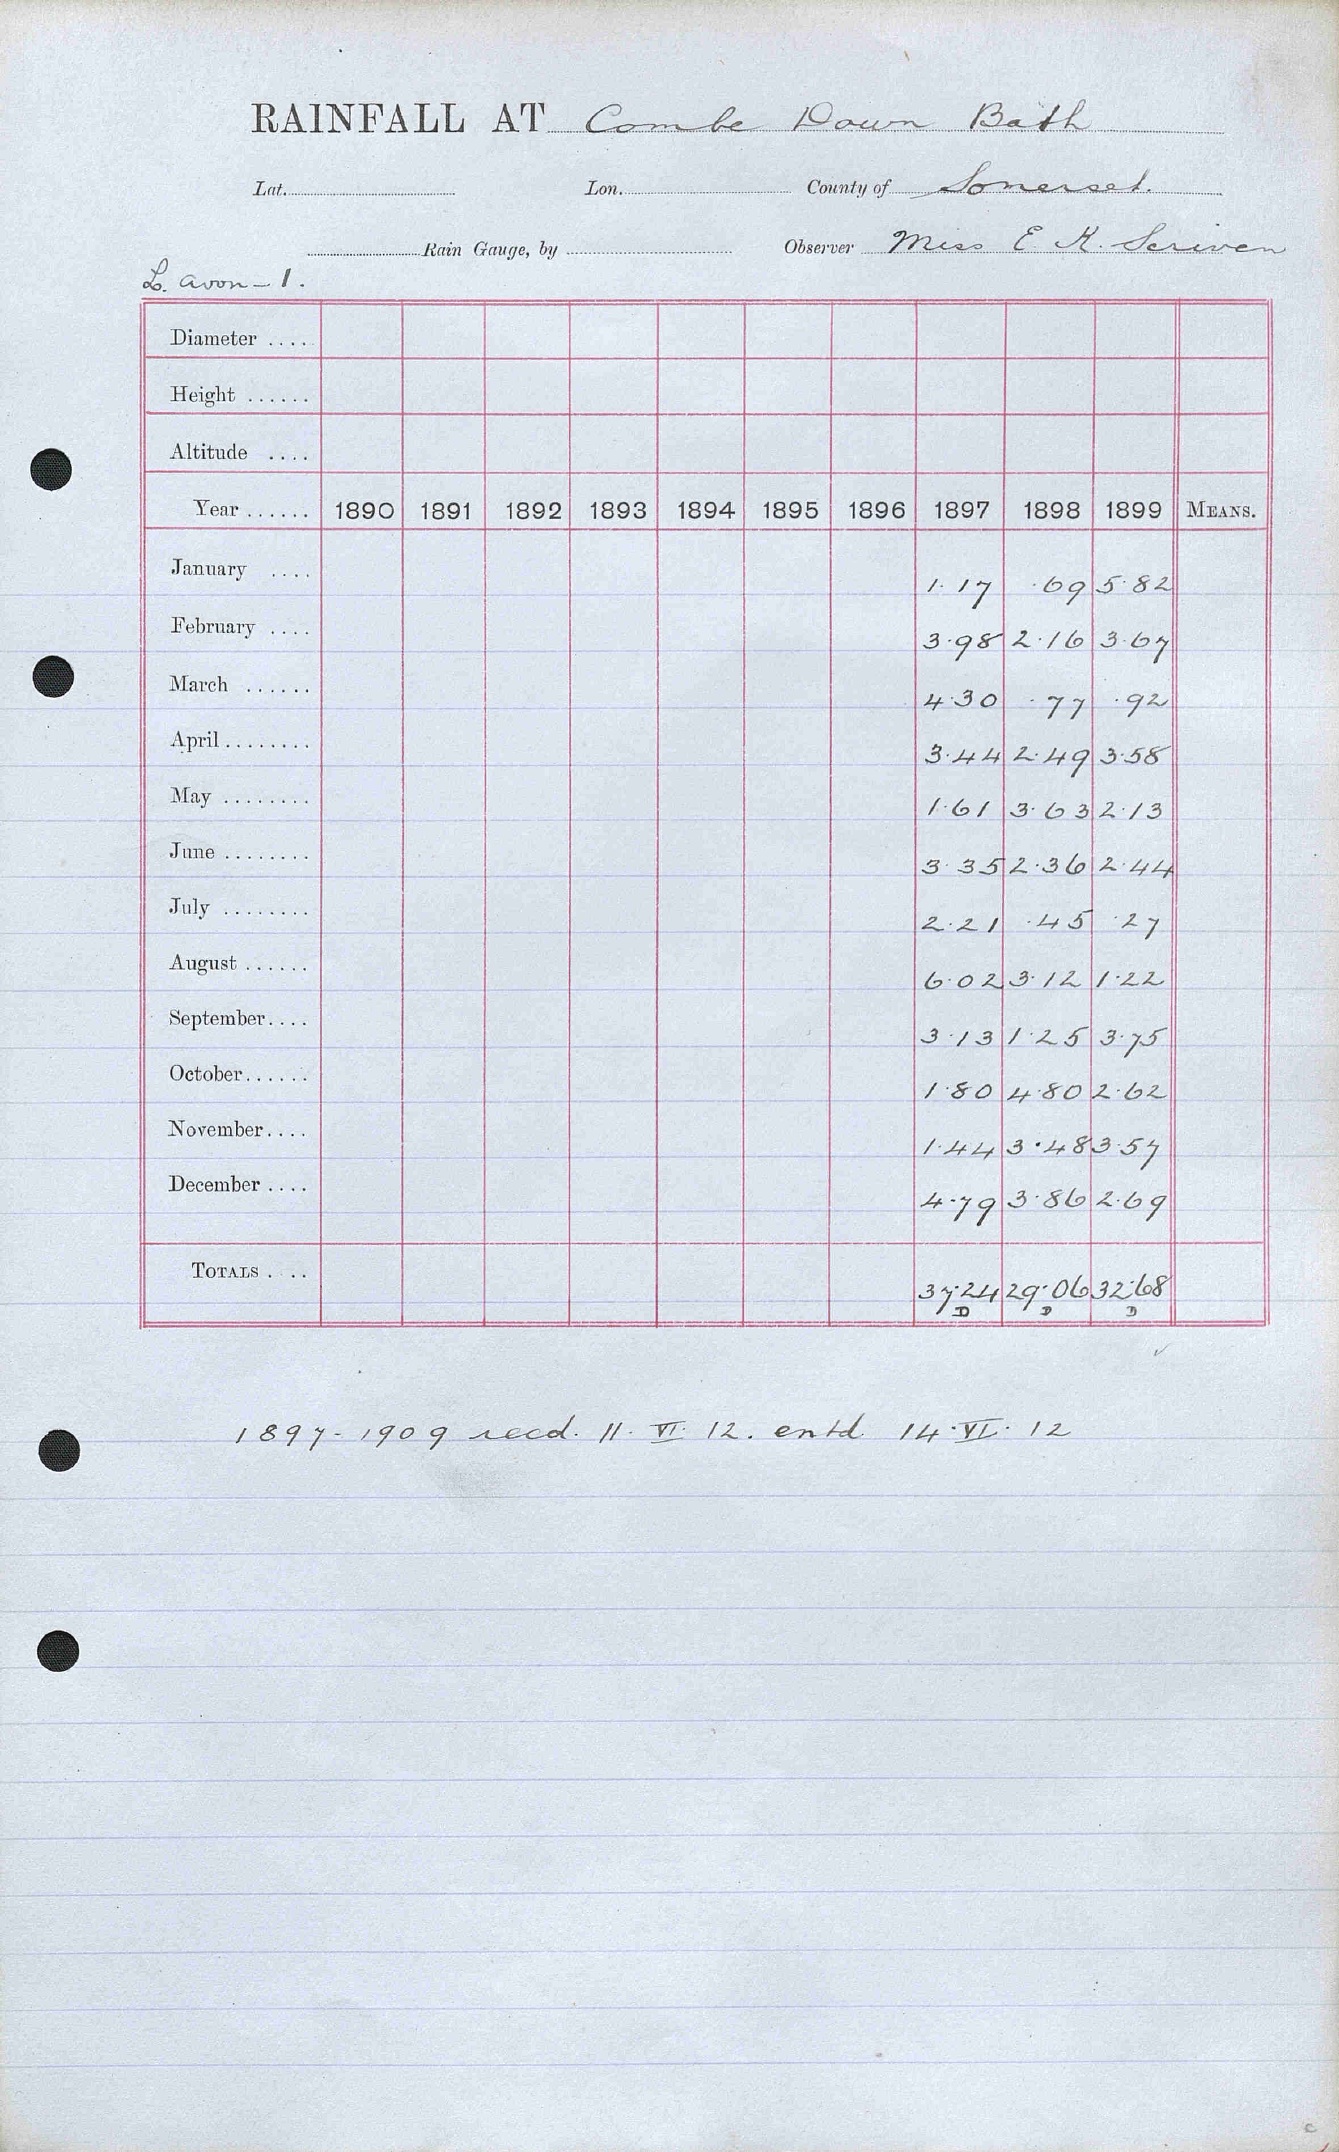 RAINFALL AT Combe Down Bath
Lat. Lon. County of Somerset.
Rain Gauge, by Observer Miss E K. Scriven
L. Avon - 1.
Diameter ....
Height ......
Altitude ....
Year ...... 1890 1891 1892 1893 1894 1895 1896 1897 1898 1899 MEANS.
January .... 1.17 .69 5.82
February .... 3.98 2.16 3.67
March ...... 4.30 .77 .92
April ........ 3.44 2.49 3.58
May ........ 1.61 3.63 2.13
June ........ 3.35 2.36 2.44
July ........ 2.21 .45 .27
August ...... 6.02 3.12 1.22
September.... 3.13 1.25 3.75
October...... 1.80 4.80 2.62
November.... 1.44 3.48 3.57
December .... 4.79 3.86 2.69
TOTALS .... 37.24 29.06 32.68
D D D
1897 - 1909 recd. 11. VI. 12. entd 14. VI. 12